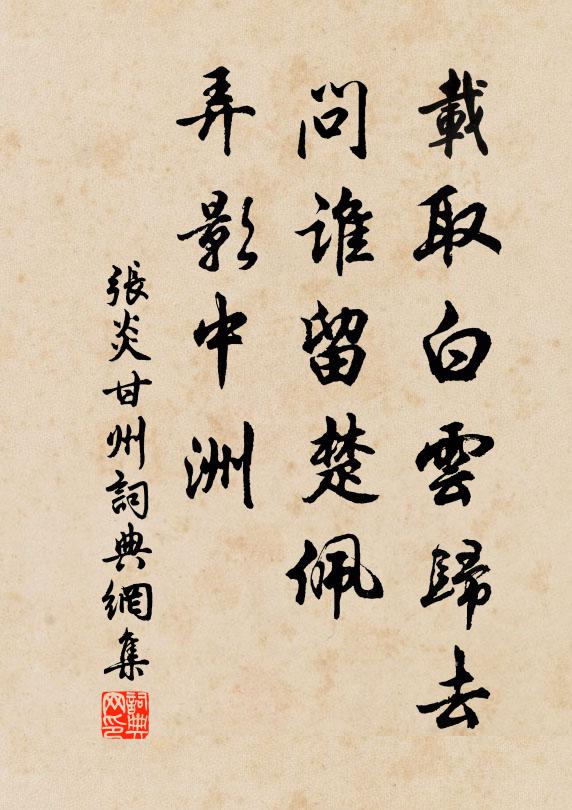 載取白雲歸去
問誰留楚佩
弄影中洲
張炎甘州詞典網集
詞典网印